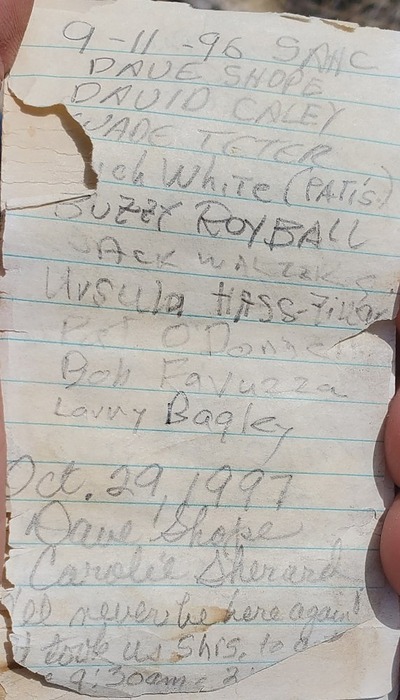 9-11-96 SAHC
DAVE SHOPE
DAVID CALEY
WADE TETER
ich White (PATIS.)
BUZZY ROYBALL
JACK
Ursula HASS-
Pat O'Donnell
Bob Favuzza
Larry Bagley
Oct. 29, 1997
Dave Shope
Carolie Sherard
I'll never be here again!
It took us 5hrs. to
9:30am - 2: